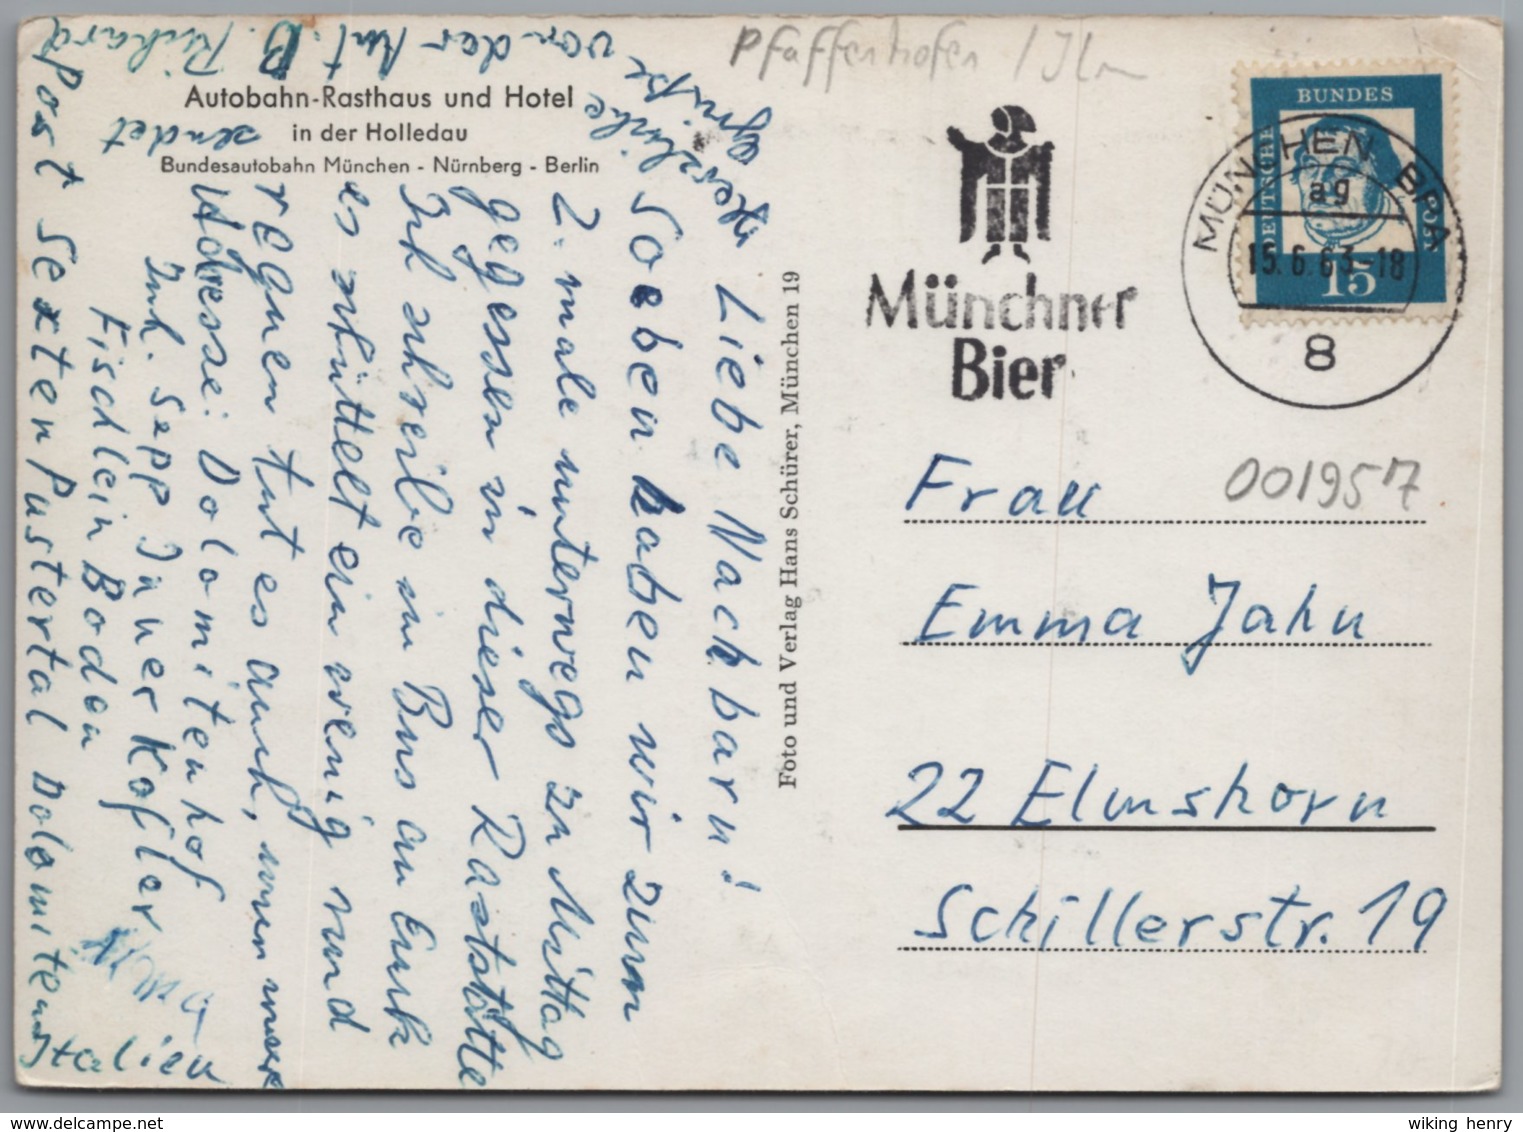 Pfaffenhofen / Ilm
Autobahn-Rasthaus und Hotel
in der Holledau
Bundesautobahn München - Nürnberg - Berlin
Foto und Verlag Hans Schürer, München 19
Münchner
Bier
MÜNCHEN BPA
ag
15.6.63-18
8
DEUTSCHE
BUNDES
POST
15
001957
Frau
Emma Jahn
22 Elmshorn
Schillerstr. 19
Liebe Nachbarn!
Soeben haben wir zum
2. male unterwegs zu Mittag
gegessen in dieser Raststätte
Ich schreibe im Bus an Euch
es schüttelt ein wenig und
regnen tut es auch, nun
Adresse: Dolomitenhof
Inh. Sepp Innerkofler
Fischlein Boden
Post Sexten Pustertal Dolomiten
Italien
Herzliche
Grüße
von der
B. Richard
sendet